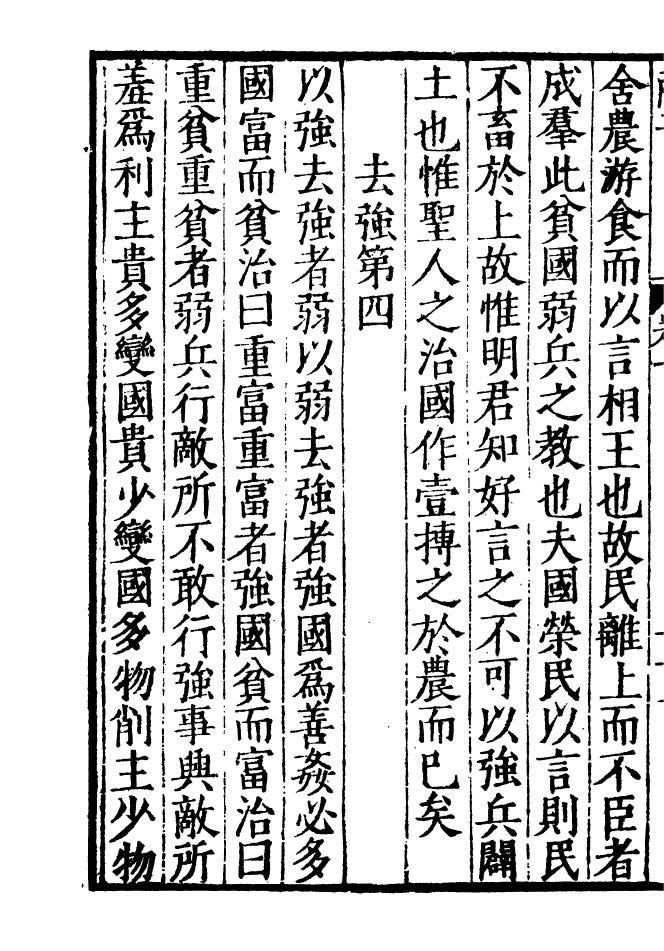 舍農游食而以言相王也故民離上而不臣者
成羣此貧國弱兵之教也夫國榮民以言則民
不畜於上故惟明君知好言之不可以強兵闢
土也惟聖人之治國作壹摶之於農而已矣
去強第四
以強去強者弱以弱去強者強國爲善姦必多
國富而貧治曰重富重富者強國貧而富治曰
重貧重貧者弱兵行敵所不敢行強事興敵所
羞爲利主貴多變國貴少變國多物削主少物